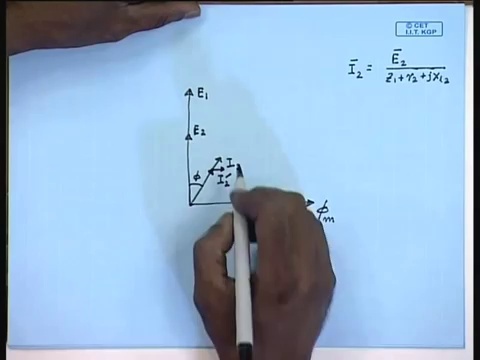 © CET
I.I.T. KGP
Ī₂ = Ē₂ / z₁ + r₂ + jx₁₂
E₁
E₂
φ
I₂′
φₘ